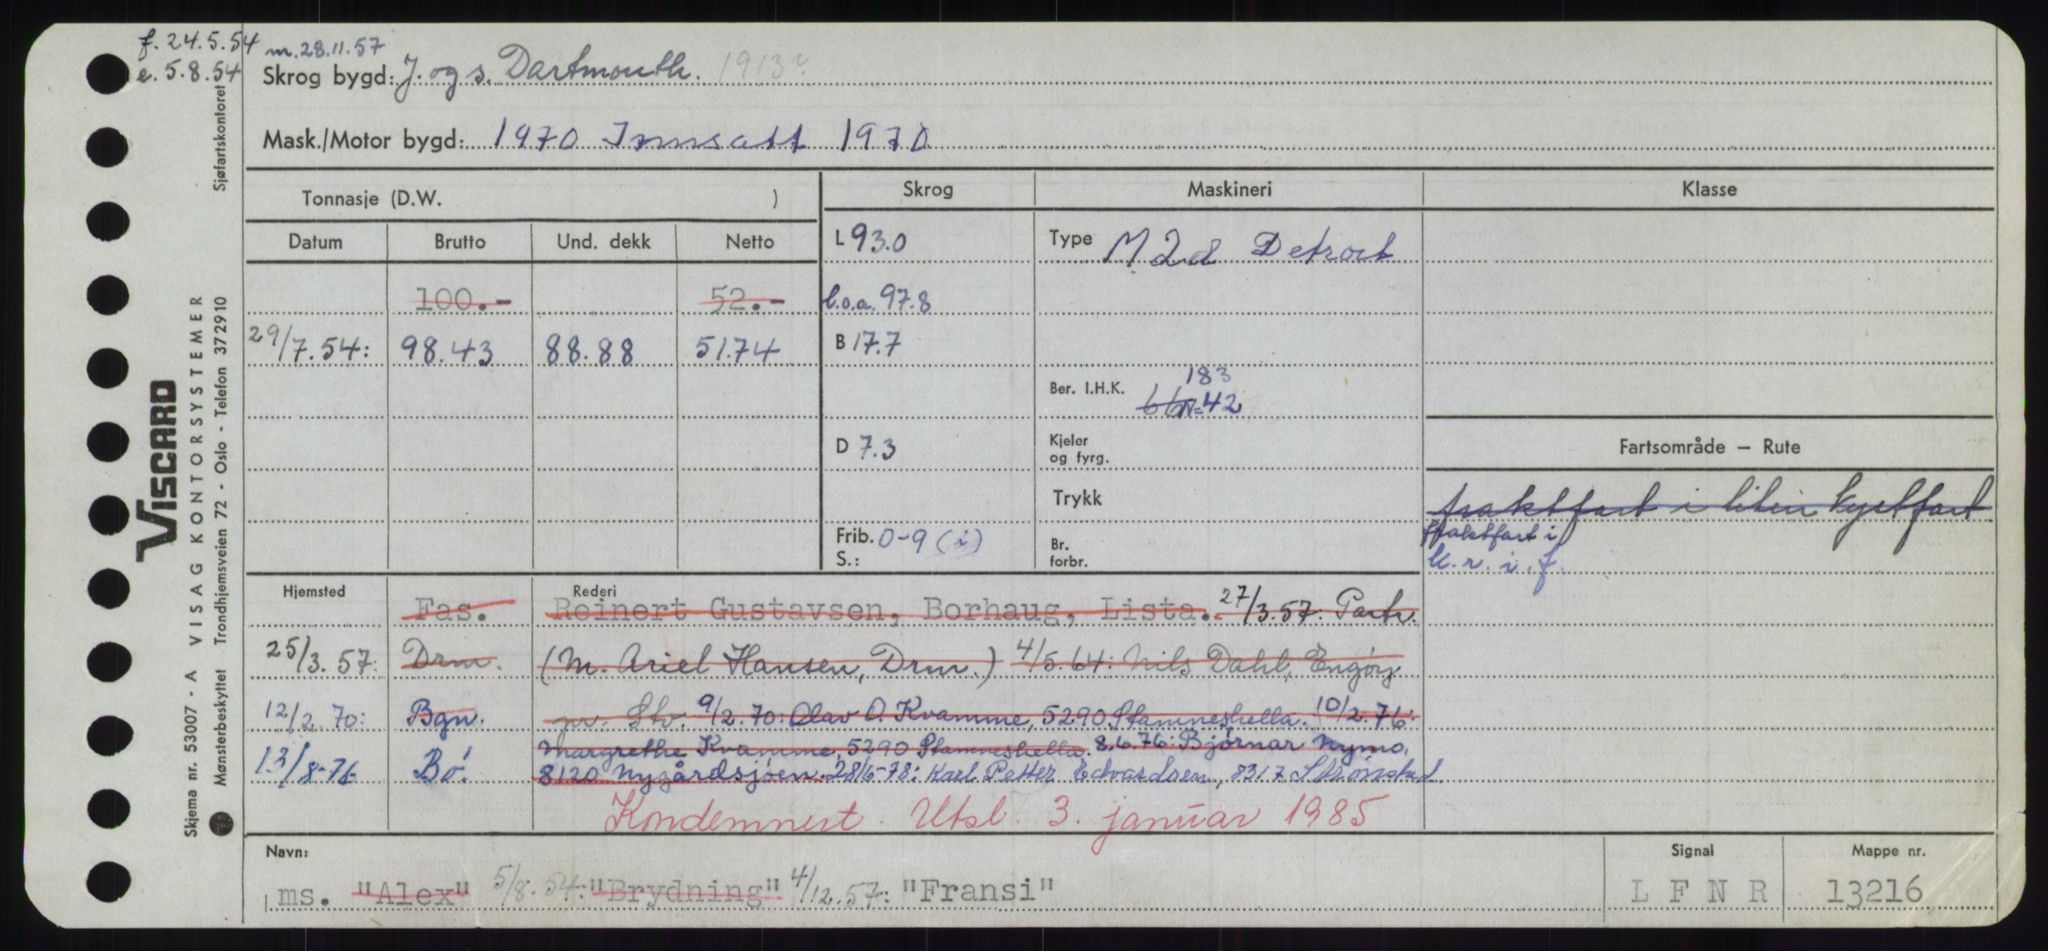 f. 24.5.54 m. 28.11.57
e. 5.8.54
Skrog bygd: J. og s. Dartmouth. 1913?
Mask./Motor bygd: 1970 Innsatt 1970
Tonnasje (D.W. )
Skrog
Maskineri
Klasse
Datum
Brutto
Und. dekk
Netto
100.-
52.-
29/7.54: 98.43 88.88 51.74
L 93.0
l.o.a. 97.8
B 17.7
D 7.3
Frib. 0-9 (i)
S.:
Type M 2d Detroit
183
Ber. I.H.K. 66 N=42
Kjeler
og fyrg.
Trykk
Br.
forbr.
Fartsområde – Rute
fraktfart i liten kystfart
fraktfart i
k. r. i. f.
Hjemsted
Rederi
Fas. Reinert Gustavsen, Borhaug, Lista. 27/3.57: Partr.
25/3.57: Drm. (M. Ariel Hansen, Drm.) 4/5.64: Nils Dahl, Engøy
12/2.70: Bgn. pr. Stv. 9/2.70: Olav O. Kvamme, 5290 Stamneshella. 10/2.76:
Margrethe Kvamme, 5290 Stamneshella. 8.6.76: Bjørnar Nymo,
13/8-76 Bø. 8120 Nygårdsjøen. 28/6-78: Karl Petter Edvardsen, 8317 Strønstad
Kondemnert. Utsl. 3. januar 1985
Navn:
ms. "Alex" 5/8.54: "Brydning" 4/12.57: "Fransi"
Signal
L F N R
Mappe nr.
13216
VISCARD
Skjema nr. 53007 - A VISAG KONTORSYSTEMER
Mønsterbeskyttet Trondhjemsveien 72 - Oslo - Telefon 372910
Sjøfartskontoret